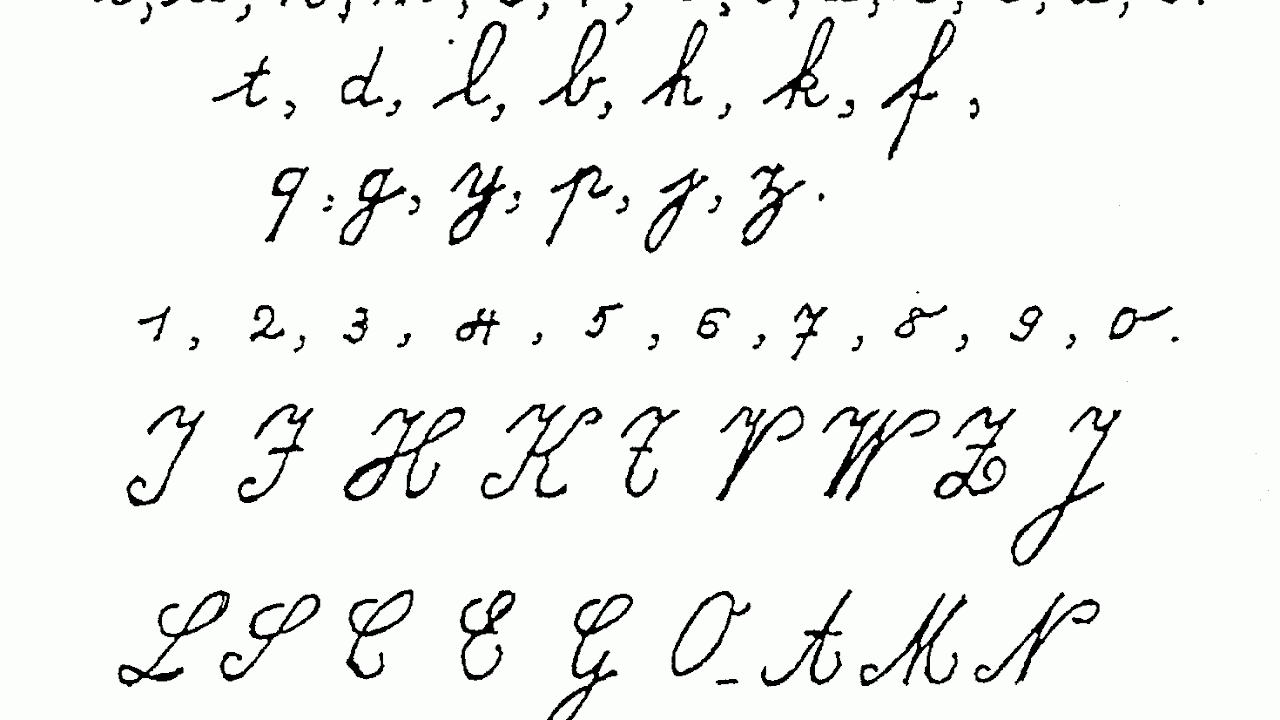 t, d, l, b, h, k, f,
q, g, y, p, j, z.
1, 2, 3, 4, 5, 6, 7, 8, 9, 0.
I F H K T V W Z J
L S C E G O - A M N